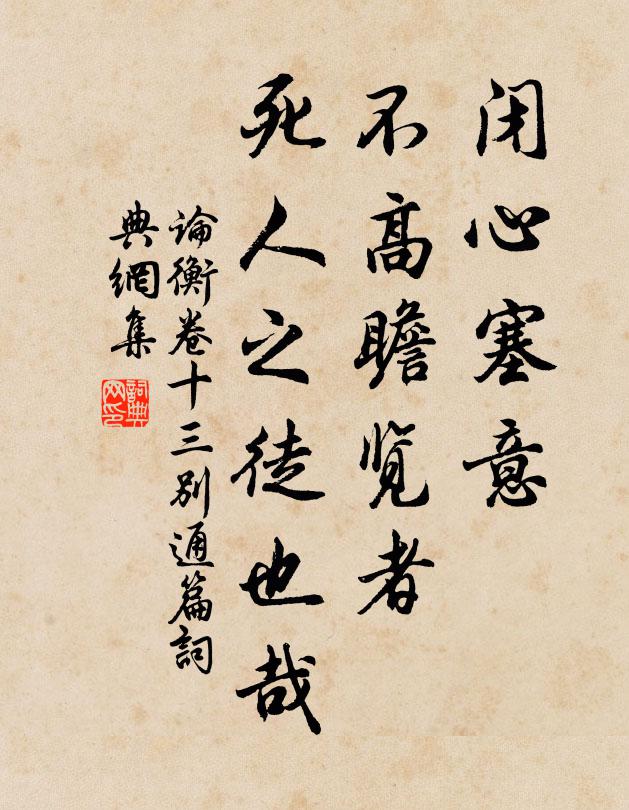 闭心塞意
不高瞻览者
死人之徒也哉
論衡卷十三别通篇詞
典網集
詞典网印